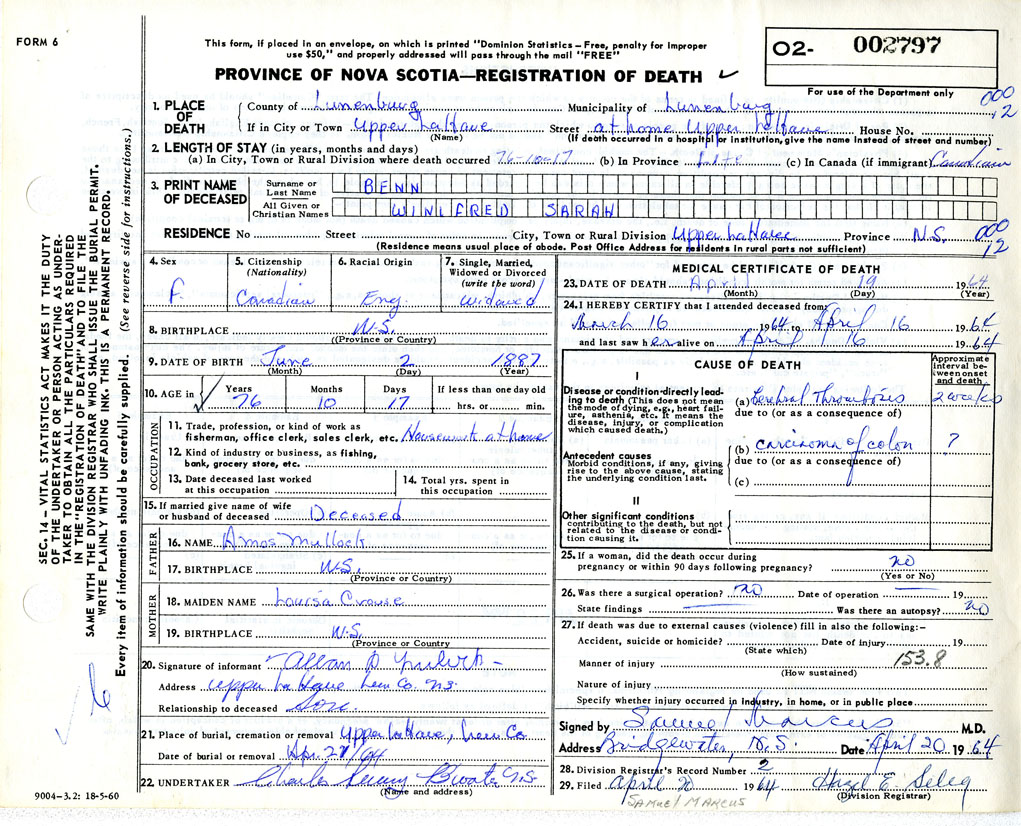 FORM 6
This form, if placed in an envelope, on which is printed "Dominion Statistics—Free, penalty for improper
use $50," and properly addressed will pass through the mail "FREE"
02- 002797
PROVINCE OF NOVA SCOTIA—REGISTRATION OF DEATH ✓
For use of the Department only
000
12
1. PLACE OF DEATH
County of Lunenburg Municipality of Lunenburg
If in City or Town Upper LaHave Street at home Upper LaHave House No.
(Name) (If death occurred in a hospital or institution, give name instead of street and number)
2. LENGTH OF STAY (in years, months and days)
(a) In City, Town or Rural Division where death occurred 76-10-17 (b) In Province Life (c) In Canada (if immigrant) Canadian
3. PRINT NAME OF DECEASED
Surname or Last Name BENN
All Given or Christian Names WINIFRED SARAH
RESIDENCE No Street City, Town or Rural Division Upper LaHave Province N.S. 000
12
(Residence means usual place of abode. Post Office Address for residents in rural parts not sufficient)
4. Sex F.
5. Citizenship (Nationality) Canadian
6. Racial Origin Eng.
7. Single, Married, Widowed or Divorced (write the word) widowed
8. BIRTHPLACE N.S.
(Province or Country)
9. DATE OF BIRTH June 2 1887
(Month) (Day) (Year)
10. AGE in Years 76 Months 10 Days 17 If less than one day old hrs. or min.
OCCUPATION
11. Trade, profession, or kind of work as
fisherman, office clerk, sales clerk, etc. Housework at home
12. Kind of industry or business, as fishing,
bank, grocery store, etc.
13. Date deceased last worked
at this occupation
14. Total yrs. spent in
this occupation
15. If married give name of wife
or husband of deceased Deceased
FATHER
16. NAME Amos Mullock
17. BIRTHPLACE N.S.
(Province or Country)
MOTHER
18. MAIDEN NAME Louisa Crouse
19. BIRTHPLACE N.S.
(Province or Country
20. Signature of informant Allan
Address Upper LaHave Lun Co. N.S.
Relationship to deceased Son.
21. Place of burial, cremation or removal Upper LaHave, Lun Co
Date of burial or removal Apr. /64
22. UNDERTAKER Charles B'water N.S
(Name and address)
MEDICAL CERTIFICATE OF DEATH
23. DATE OF DEATH April 19 1964
(Month) (Day) (Year)
24. I HEREBY CERTIFY that I attended deceased from
March 16 1964 to April 16 1964
and last saw her alive on April 16 1964
CAUSE OF DEATH
Approximate interval between onset and death
I
Disease or condition directly leading to death (This does not mean the mode of dying, e.g., heart failure, asthenia, etc. It means the disease, injury, or complication which caused death.)
(a) Cerebral Thrombosis 2 weeks
due to (or as a consequence of)
Antecedent causes
Morbid conditions, if any, giving rise to the above cause, stating the underlying condition last.
(b) carcinoma of colon ?
due to (or as a consequence of)
(c)
II
Other significant conditions
contributing to the death, but not related to the disease or condition causing it.
25. If a woman, did the death occur during
pregnancy or within 90 days following pregnancy? no
(Yes or No)
26. Was there a surgical operation? no Date of operation 19
State findings Was there an autopsy? no
27. If death was due to external causes (violence) fill in also the following:—
Accident, suicide or homicide? Date of injury 19
(State which)
Manner of injury 153.8
(How sustained)
Nature of injury
Specify whether injury occurred in industry, in home, or in public place
Signed by Samuel Marcus M.D.
Address Bridgewater, N.S. Date April 20 1964
28. Division Registrar's Record Number 2
29. Filed April 20 1964 Hazel E. Seleg
(Division Registrar)
SAMUEL MARCUS
9004-3.2: 18-5-60
SEC. 14 — VITAL STATISTICS ACT MAKES IT THE DUTY
OF THE UNDERTAKER OR PERSON ACTING AS UNDER-
TAKER TO OBTAIN ALL THE PARTICULARS REQUIRED
IN THE "REGISTRATION OF DEATH" AND TO FILE THE
SAME WITH THE DIVISION REGISTRAR WHO SHALL ISSUE THE BURIAL PERMIT.
WRITE PLAINLY WITH UNFADING INK. THIS IS A PERMANENT RECORD.
Every item of information should be carefully supplied. (See reverse side for instructions.)
6